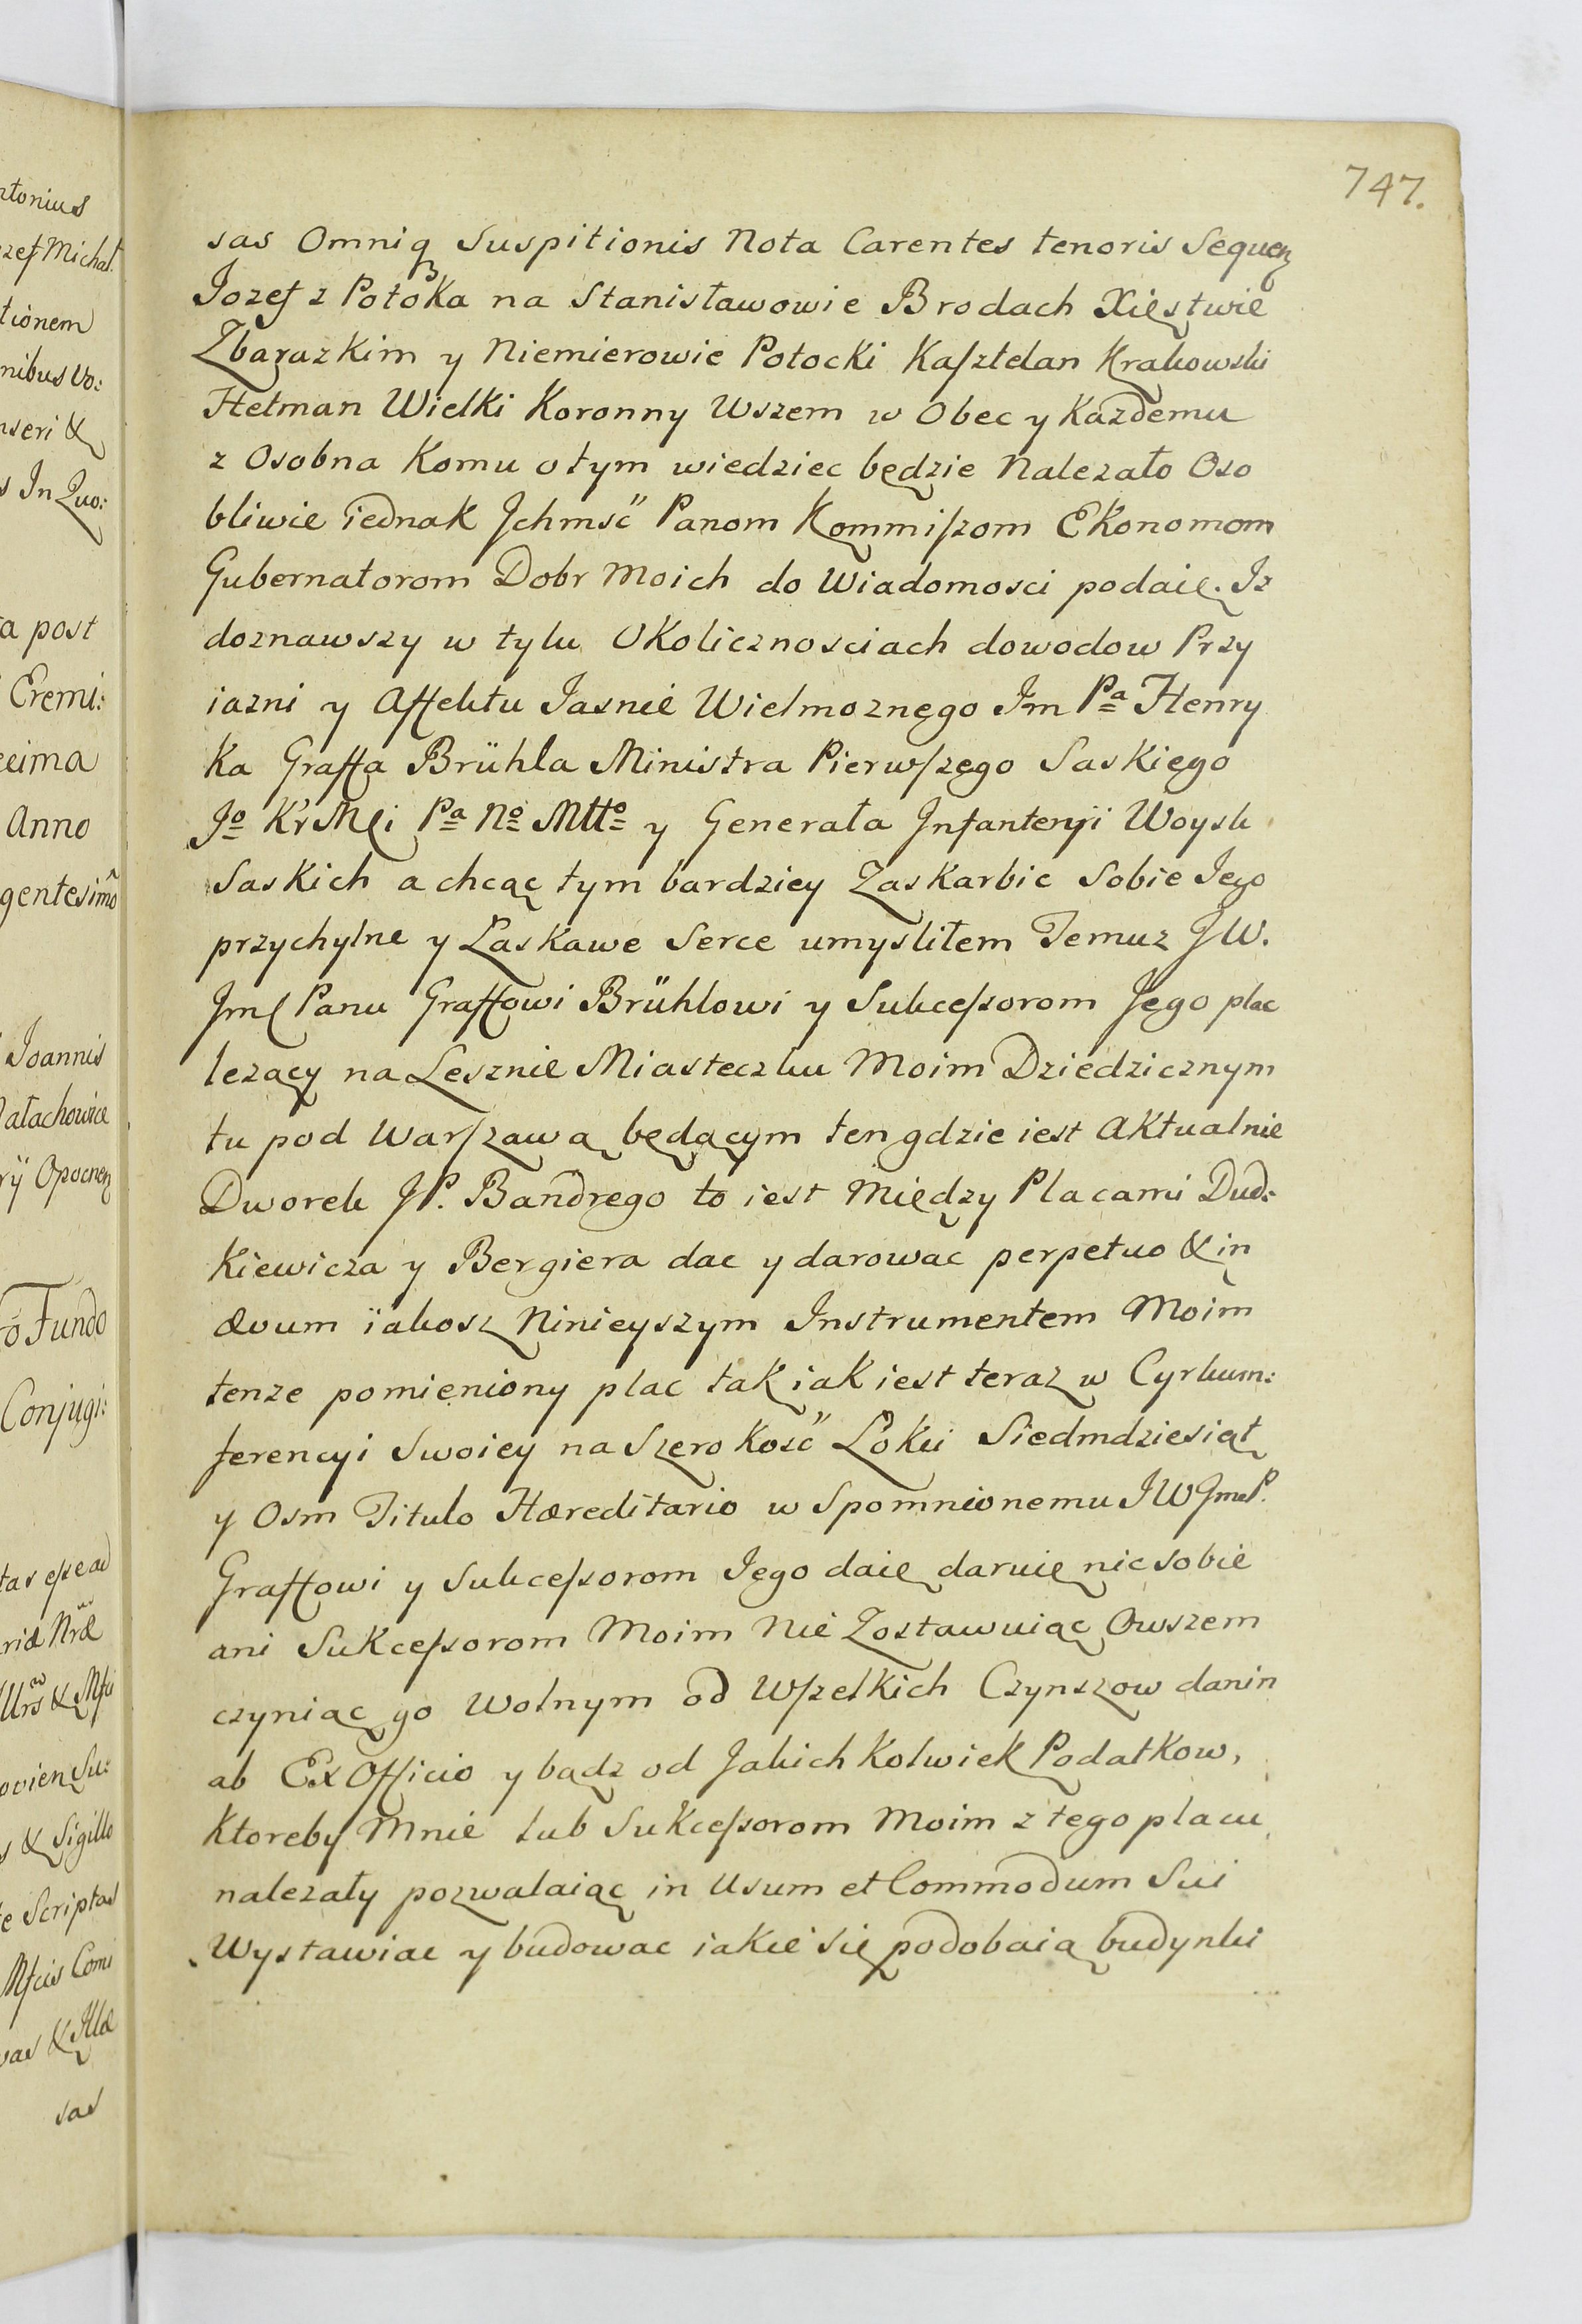 747.
sas Omniq Suspitionis Nota Carentes tenoris Sequen
Jozef z Potoka na Stanisławowie Brodach Xięstwie
Zbarazkim y Niemierowie Potocki Kasztelan Krakowski
Hetman Wielki Koronny Wszem w Obec y Kazdemu
z Osobna Komu o tym wiedziec będzie Nalezało Oso
bliwie iednak Jchmść Panom Kommiszom Ekonomom
Gubernatorom Dobr Moich do Wiadomosci podaię. Iz
doznawszy w tylu Okolicznosciach dowodow Przy
iazni y Affektu Jasnie Wielmoznego Jm Pa Henry
ka Graffa Brühla Ministra Pierwszego Saskiego
Jo Kr Mci Pa No Mtto y Generała Jnfanteryi Woysk
Saskich a chcąc tym bardziey Zaskarbic Sobie Jego
przychylne y Łaskawe Serce umysliłem Temuz JW.
Jmc Panu Graffowi Brühlowi y Sukcessorom Jego plac
lezący na Lesznie Miasteczku Moim Dziedzicznym
tu pod Warszawą będącym ten gdzie iest Aktualnie
Dworek JP. Bandrego to iest Między Placami Dud:
kiewicza y Bergiera dac y darowac perpetuo & in
ævum iakosz Ninieyszym Instrumentem Moim
tenze pomieniony plac tak iak iest teraz w Cyrkum:
ferencyi Swoiey na Szerokość Łokci Siedmdziesiąt
y Osm Titulo Hæreditario wspomnionemu JW Jmc P.
Graffowi y Sukcessorom Jego daię daruię nic sobie
ani Sukcessorom Moim Nie Zostawuiąc Owszem
czyniąc go Wolnym od Wszelkich Czynszow danin
ab Ex Officio y bądz od Jakich Kolwiek Podatkow,
Ktoreby Mnie lub Sukcessorom Moim z tego placu
nalezały pozwalaiąc in Usum et Commodum Sui
Wystawiac y budowac iakie się podobaią budynki